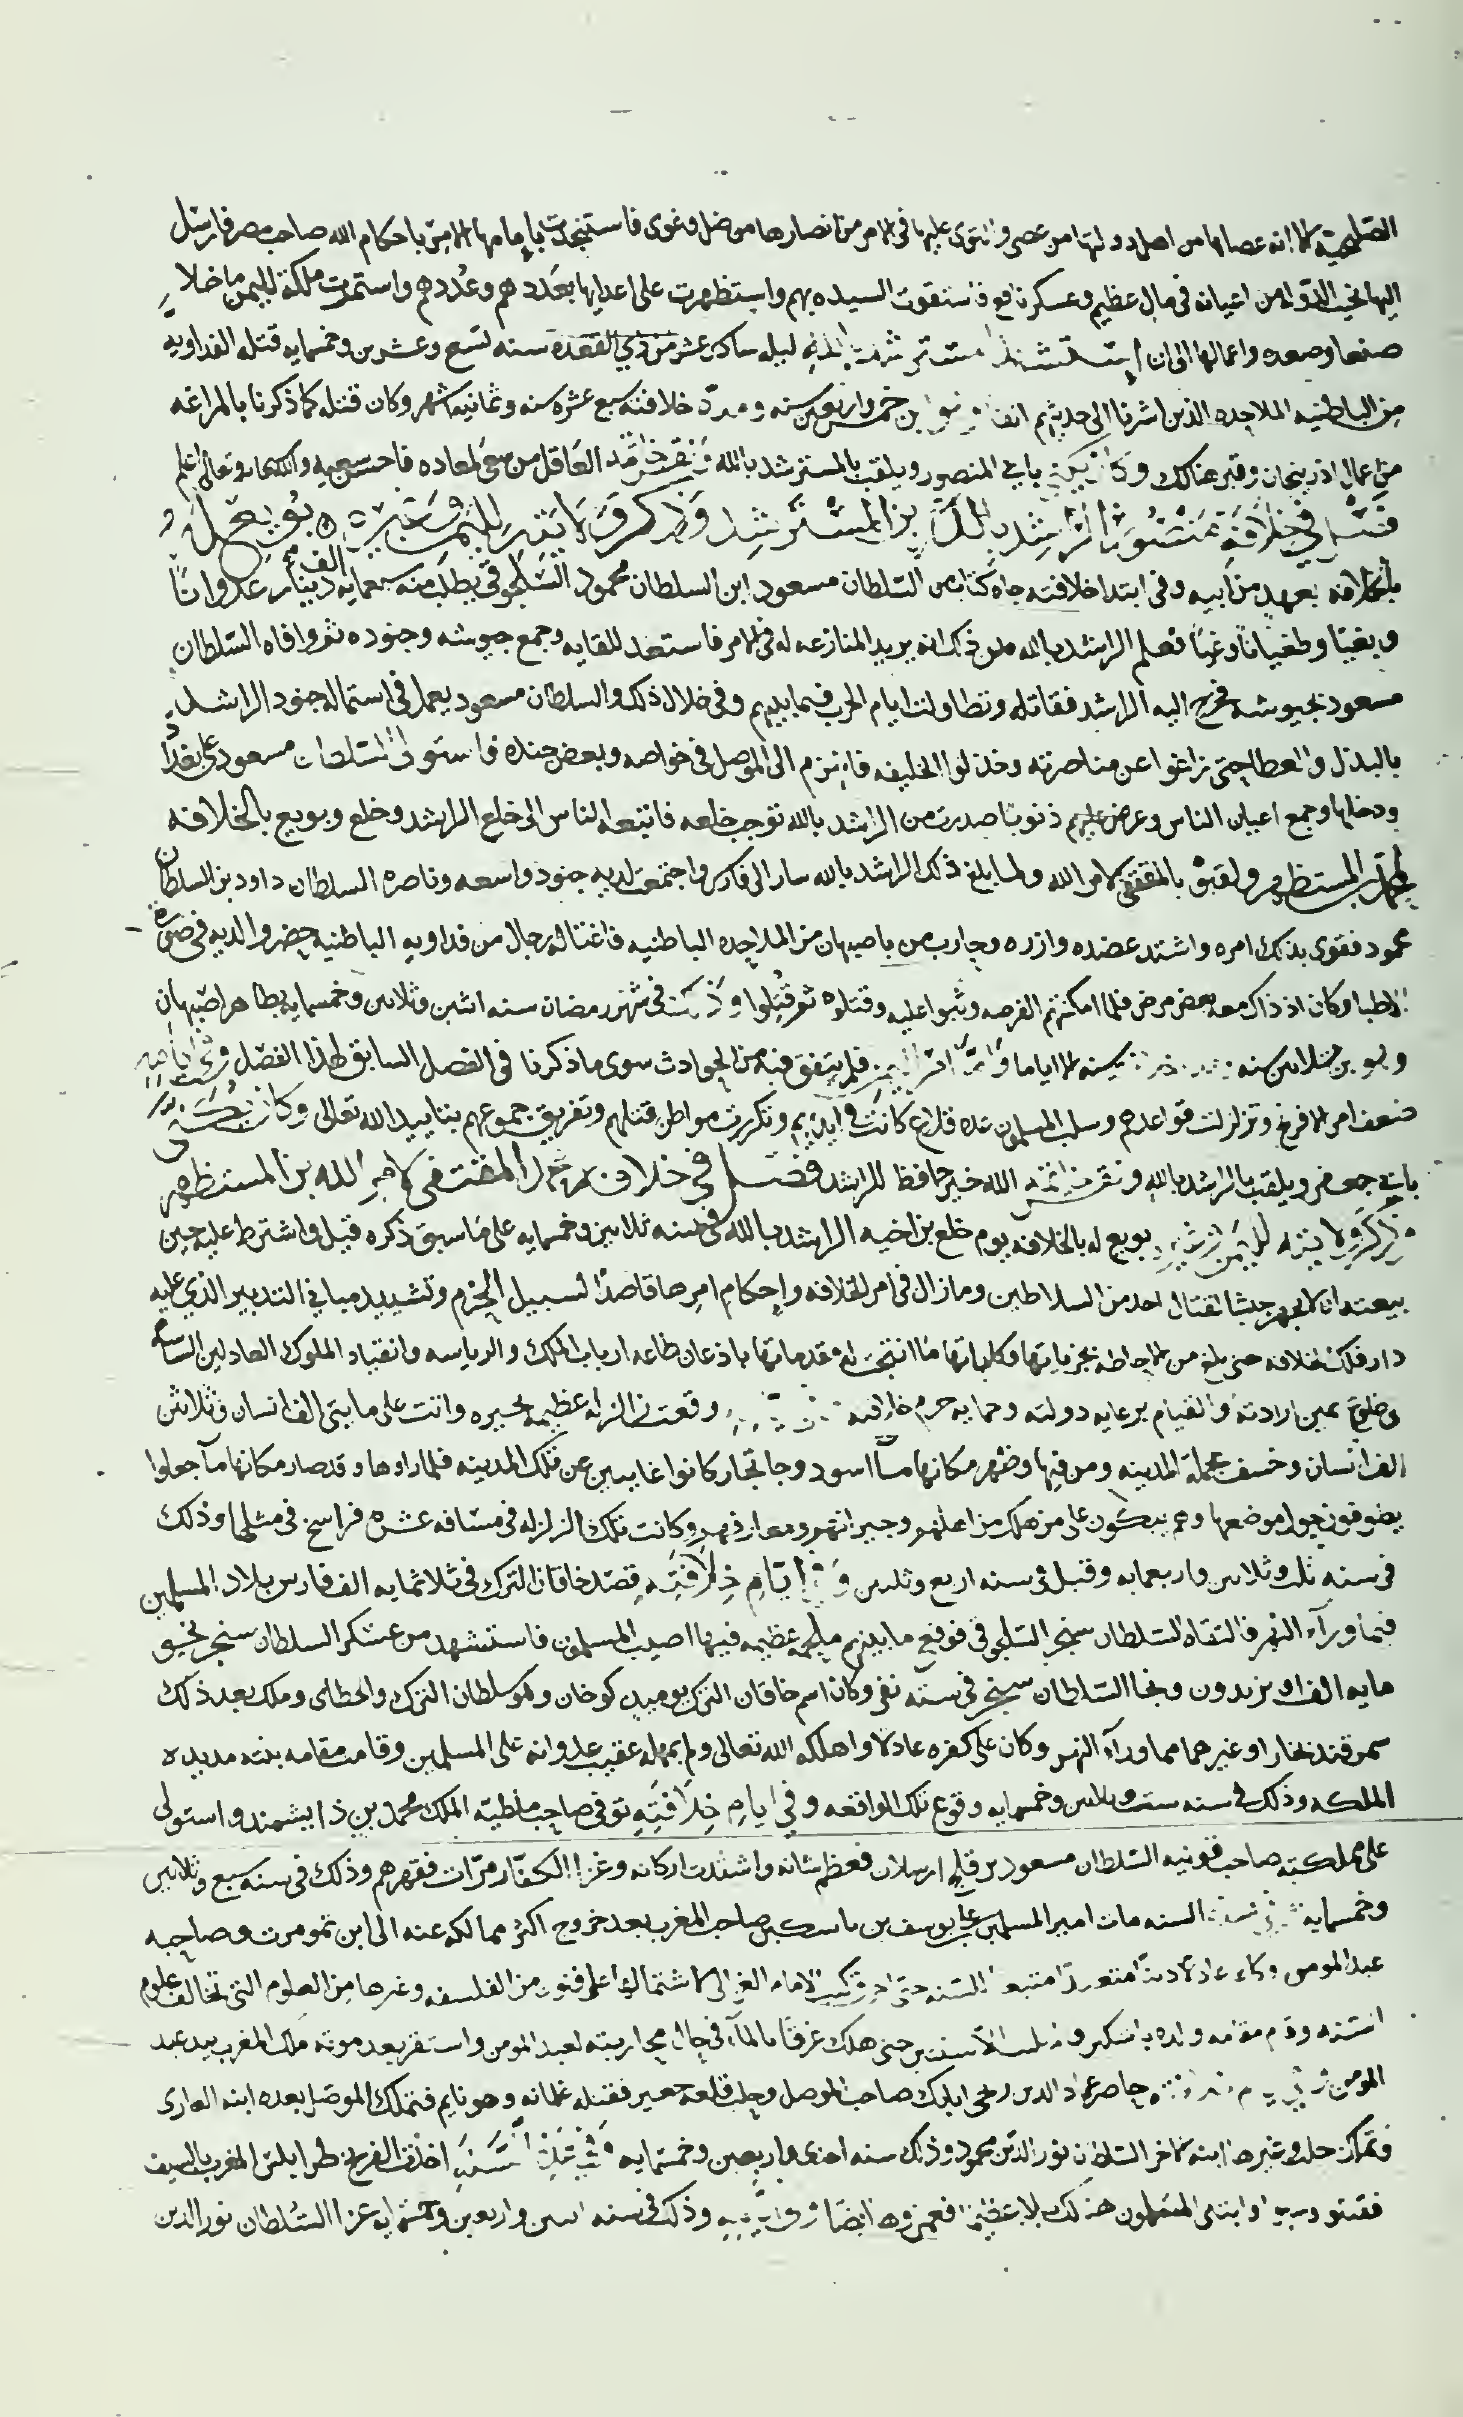 الصليحية الا انه عصاها من اهل دولتها من عصى والتوى عليها في الامر من انصارها من ضل وغوى فاستنجدت بامامها الامر باحكام الله صاحب مصر فارسل
اليها نجيب الدوله من اعيانه في مال عظيم وعسكر نافع فاستقوت السيده بهم واستظهرت على اعدايها بعَددهم وعُددهم واستمرت ملكة لليمن ما خلا
صنعا وصعده واعمالها الى ان استشهد المسترشد بالله ليله سادس عشر من ذي القعدة سنه تسع وعشرين وخمسمايه قتله الفداويه
من الباطنيه الملاحده الذين اشرنا الى حديثهم انفا وهو ابن خمس واربعين سنه ومدة خلافته سبع عشره سنه وثمانية اشهر وكان قتله كما ذكرنا بالمراغه
من اعمال اذربيجان وقبر هنالك وكان يكنى بابي المنصور ويلقب بالمسترشد بالله ونقش خاتمه العاقل من سعى لمعاده فاحسن سعيه والله سبحانه وتعالى اعلم
فصل في خلافة منصور الراشد بالله بن المسترشد وذكر ولايته لليمن بويع له
بالخلافه بعهد من ابيه وفي ابتدا خلافته جاه كتاب من السلطان مسعود ابن السلطان محمود السلجوقي يطلب منه سبعمايه الف دينار عدوانا
وبغيا وطغيانا وغيا فعلم الراشد بالله من ذلك انه يريد المنازعه له في الامر فاستعد للقايه وجمع جيوشه وجنوده ثم وافاه السلطان
مسعود بجيوشه فخرج اليه الراشد فقاتله وتطاولت ايام الحرب فيما بينهم وفي خلال ذلك والسلطان مسعود يعمل في استماله جنود الراشد
بالبذل والعطا حتى زاغوا عن مناصرته وخذلوا الخليفه فانهزم الى الموصل في خواصه وبعض جنده فاستولى السلطان مسعود على بغداد
ودخلها وجمع اعيان الناس وعرض عليهم ذنوبا صدرت من الراشد بالله توجب خلعه فاتبعه الناس الى خلع الراشد وخلع وبويع بالخلافه
لمحمد بن المستظهر ولقبوه بالمقتفي لامر الله ولما بلغ ذلك الراشد بالله سار الى فارس واجتمعت لديه جنود واسعه وناصره السلطان داود بن السلطان
محمود فقوى بذلك امره واشتد عضده وازره وحارب من باصبهان من الملاحده الباطنيه فاغتاله رجال من فداويه الباطنيه حضروا لديه في صورة
الاطبا وكان اذ ذاك معه بعض مرض فلما امكنتهم الفرصه وثبوا عليه وقتلوه ثم قُتِلوا وذلك في شهر رمضان سنه اثنين وثلاثين وخمسمايه بظاهر اصبهان
وهو بن ثلاثين سنه سنه الا اياما واما اقليم اليمن فلم يتفق فيه من الحوادث سوى ما ذكرنا في الفصل السابق لهذا الفصل وفي ايامه
ضعف امر الافرنج وتزلزلت قواعدهم وسلب المسلمون عده قلاع كانت في ايديهم وتكررت مواطن قتلهم وتفريق جموعهم بتاييد الله تعالى وكان يكنى
بابي جعفر ويلقب بالراشد بالله ونقش خاتمه الله خير حافظا للراشد فصل في خلافة محمد المقتفي لامر الله بن المستظهر
وذكر ولايته لليمن بويع له بالخلافه يوم خلع بن اخيه الراشد بالله في سنه ثلاثين وخمسمايه على ما سبق ذكره قبل واشترط عليه حين
بيعته ان لا يجهز جيشا لقتال احد من السلاطين وما زال في امر الخلافه واحكام امرها قاصدا لسبيل الحزم وتشييد مباني التدبير الذي عليه
دار فلك الخلافه حتى بلغ من الاحاطه بجزياتها وكلياتها ما انتجت له مقدماتها باذعان طاعه ارباب الملك والرياسه وانقياد الملوك العادلين
يمين ارادته والقيام برعايه دولته وحمايه حرم خلافته وقعت الزلزله عظيمه بحيره واتت على مايتي الف انسان وثلاثين
الف انسان وخسف بجملة المدينه ومن فيها وظهر مكانها ما اسود وجا تجار كانوا غايبين عن تلك المدينه فلما راوها وقد صار مكانها ما جعلوا
يطوفون حول موضعها وهم يبكون على من هلك من اهلهم وجيرانهم ومعارفهم وكانت تلك الزلزله في مسافه عشره فراسخ في مثلها وذلك
في سنه ثلث وثلاثين واربعمايه وقيل في سنه اربع وثلثين وفي ايام خلافته قصد خاقان الترك في ثلاثمايه الف فارس بلاد المسلمين
فيما ورآء النهر فالتقاه السلطان سنجر السلجوقي فوقع ما بينهم ملحمه عظيمه فيها اصيب المسلمون فاستشهد من عسكر السلطان سنجر نحو
مايه الف او يزيدون ونجا السلطان سنجر في سته نفر وكان اسم خاقان الترك يوميذ كوخان وهو سلطان الترك والخطاى وملك بعد ذلك
سمرقند وبخارا وغيرهما مما ورآء النهر وكان على كفره عادلا واهلكه الله تعالى ولم يمهله عقيب عدوانه على المسلمين وقامت مقامه بنته مديده
الملكه وذلك في سنه ست وثلاثين وخمسمايه وقوع تلك الواقعه وفي ايام خلافته توفي صاحب ملطيه الملك محمد بن ذا نيشمند واستولى
على مملكته صاحب قونيه السلطان مسعود بن قليج ارسلان فعظم شانه واشتدت اركانه وغزا الكفار مرّات فقهرهم وذلك في سنه سبع وثلاثين
وخمسمايه السنه مات امير المسلمين علي بن يوسف بن تاشفين صاحب المغرب بعد خروج اكثر ممالكه عنه الى ابن تومرت وصاحبه
عبد المومن وكان عادلا دينا متعبدا متبعا للسنه حتى احرق كتب الامام الغزالي لاشتمالها على فنون من الفلسفه وغيرها من العلوم التي تخالف علوم
السنه وقام مقامه ولده تاشفين حتى هلك غرقا بالمآء في حال محاربته لعبد المومن واستقر بعد موته ملك المغرب بيد عبد
المومن حاصر عماد الدين زنكي اتابك صاحب الموصل وحلب قلعه جعبر فقتله غلمانه وهو نايم فتملك الموصل بعده ابنه الغازي
وتملك حلب وغيرها ابنه الاخر السلطان نور الدين محمود وذلك سنه احدى واربعين وخمسمايه وفي هذه السنه اخذت الفرنج طرابلس المغرب بالسيف
فقتلوا وسبوا وابتلى المسلمون هنالك بلا عظيما وذلك في سنه اثنين واربعين وخمسمايه غزا السلطان نور الدين